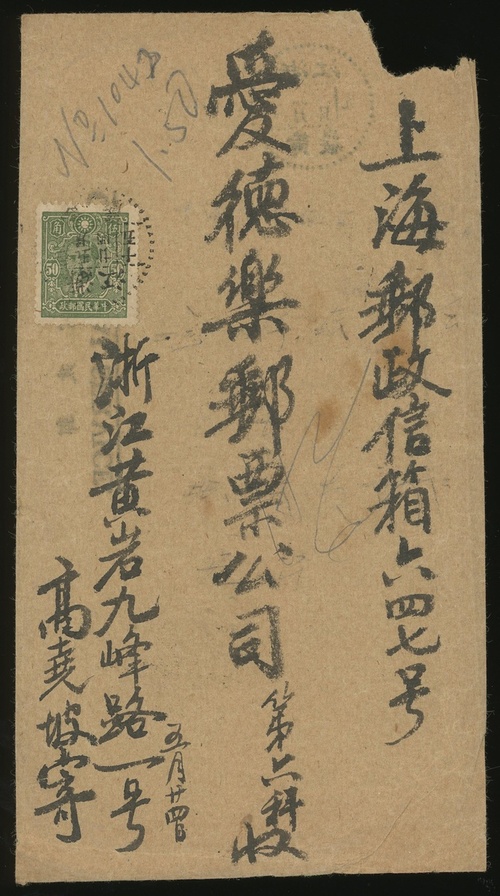 上海郵政信箱六四七号
愛德樂郵票公司
第六科收
浙江黄岩九峰路一号
五月廿四日
高堯坡寄
No. 1048
1.50
角
50
中華民國郵政